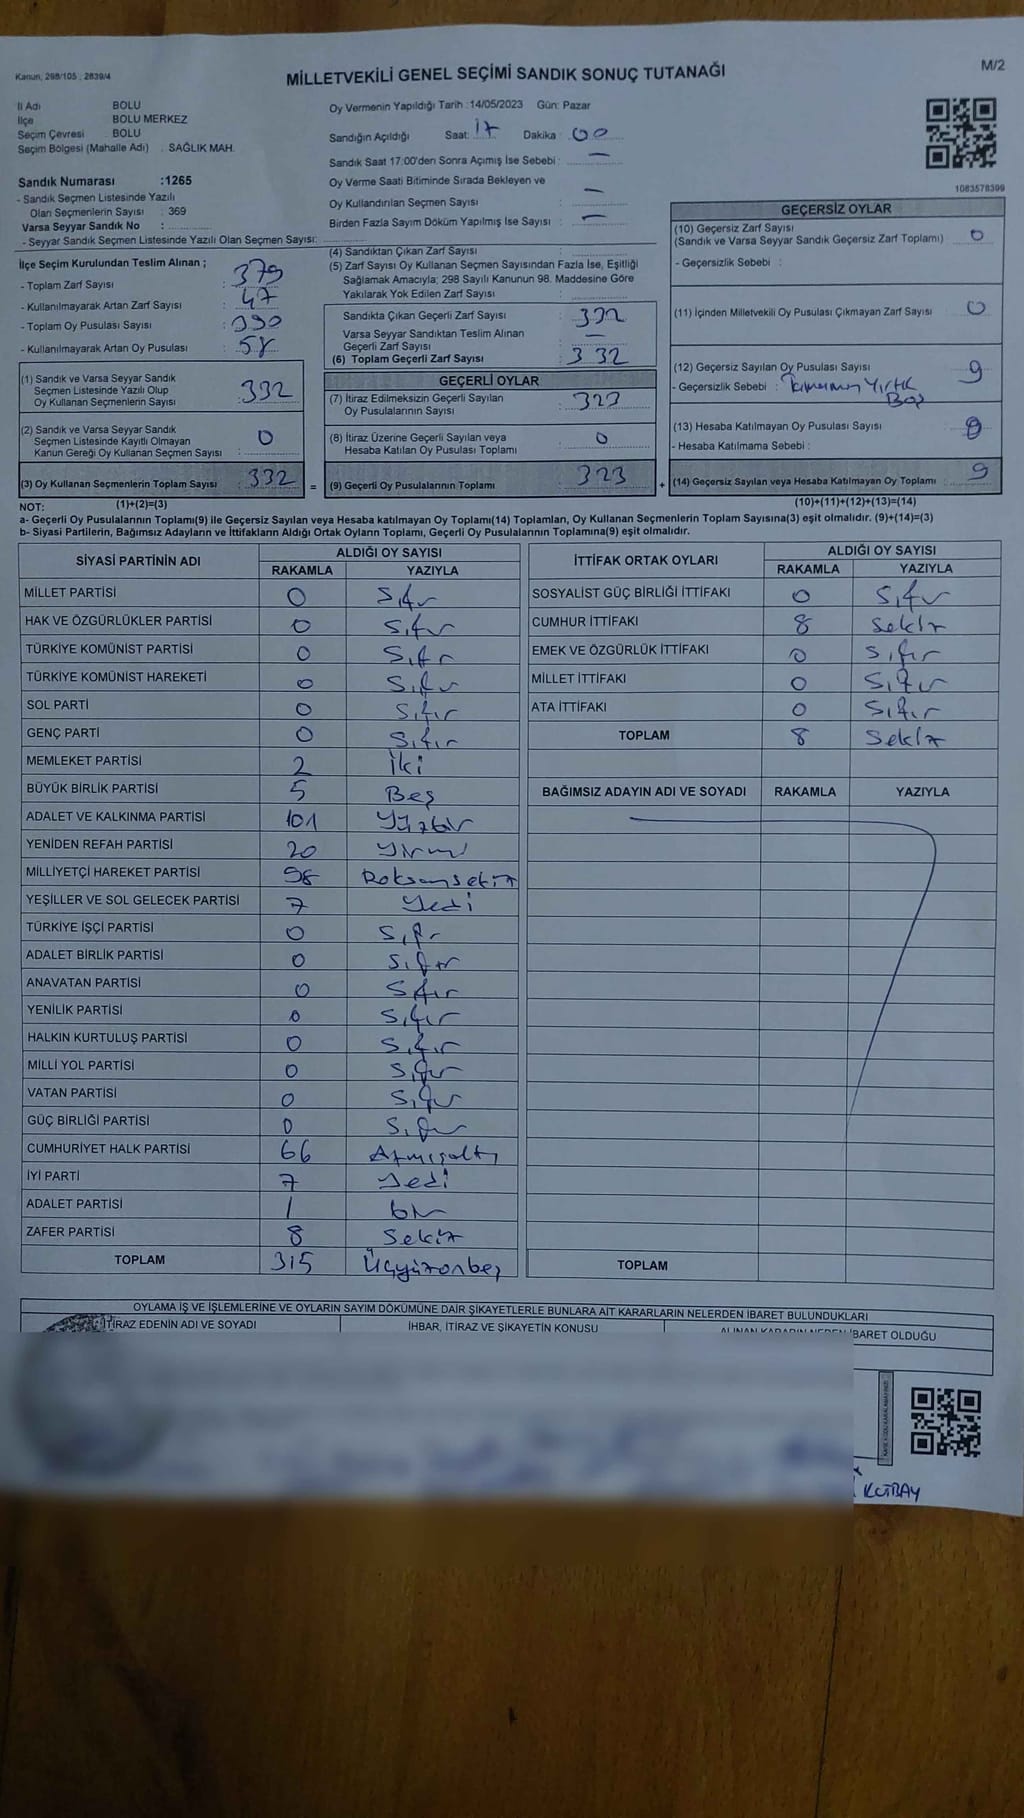 Kanun, 298/105 ; 2839/4
MİLLETVEKİLİ GENEL SEÇİMİ SANDIK SONUÇ TUTANAĞI
M/2
İl Adı BOLU
İlçe BOLU MERKEZ
Seçim Çevresi BOLU
Seçim Bölgesi (Mahalle Adı) . SAĞLIK MAH.
Sandık Numarası :1265
- Sandık Seçmen Listesinde Yazılı
Olan Seçmenlerin Sayısı : 369
Varsa Seyyar Sandık No :
- Seyyar Sandık Seçmen Listesinde Yazılı Olan Seçmen Sayısı:
İlçe Seçim Kurulundan Teslim Alınan ;
- Toplam Zarf Sayısı : 379
- Kullanılmayarak Artan Zarf Sayısı : 47
- Toplam Oy Pusulası Sayısı : 390
- Kullanılmayarak Artan Oy Pusulası : 58
(1) Sandık ve Varsa Seyyar Sandık
Seçmen Listesinde Yazılı Olup
Oy Kullanan Seçmenlerin Sayısı : 332
(2) Sandık ve Varsa Seyyar Sandık
Seçmen Listesinde Kayıtlı Olmayan
Kanun Gereği Oy Kullanan Seçmen Sayısı : 0
(3) Oy Kullanan Seçmenlerin Toplam Sayısı : 332 =
Oy Vermenin Yapıldığı Tarih :14/05/2023 Gün: Pazar
Sandığın Açıldığı Saat: 17 Dakika : 00
Sandık Saat 17:00'den Sonra Açımış İse Sebebi : —
Oy Verme Saati Bitiminde Sırada Bekleyen ve
Oy Kullandırılan Seçmen Sayısı : —
Birden Fazla Sayım Döküm Yapılmış İse Sayısı : —
(4) Sandıktan Çıkan Zarf Sayısı :
(5) Zarf Sayısı Oy Kullanan Seçmen Sayısından Fazla İse, Eşitliği
Sağlamak Amacıyla; 298 Sayılı Kanunun 98. Maddesine Göre
Yakılarak Yok Edilen Zarf Sayısı :
Sandıkta Çıkan Geçerli Zarf Sayısı : 332
Varsa Seyyar Sandıktan Teslim Alınan
Geçerli Zarf Sayısı : —
(6) Toplam Geçerli Zarf Sayısı : 332
GEÇERLİ OYLAR
(7) İtiraz Edilmeksizin Geçerli Sayılan
Oy Pusulalarının Sayısı : 323
(8) İtiraz Üzerine Geçerli Sayılan veya
Hesaba Katılan Oy Pusulası Toplamı : 0
(9) Geçerli Oy Pusulalarının Toplamı : 323 +
1083578399
GEÇERSİZ OYLAR
(10) Geçersiz Zarf Sayısı
(Sandık ve Varsa Seyyar Sandık Geçersiz Zarf Toplamı) : 0
- Geçersizlik Sebebi :
(11) İçinden Milletvekili Oy Pusulası Çıkmayan Zarf Sayısı : 0
(12) Geçersiz Sayılan Oy Pusulası Sayısı : 9
- Geçersizlik Sebebi : Yırtık
Boş
(13) Hesaba Katılmayan Oy Pusulası Sayısı :
- Hesaba Katılmama Sebebi :
(14) Geçersiz Sayılan veya Hesaba Katılmayan Oy Toplamı : 9
NOT: (1)+(2)=(3) (10)+(11)+(12)+(13)=(14)
a- Geçerli Oy Pusulalarının Toplamı(9) ile Geçersiz Sayılan veya Hesaba katılmayan Oy Toplamı(14) Toplamları, Oy Kullanan Seçmenlerin Toplam Sayısına(3) eşit olmalıdır. (9)+(14)=(3)
b- Siyasi Partilerin, Bağımsız Adayların ve İttifakların Aldığı Ortak Oyların Toplamı, Geçerli Oy Pusulalarının Toplamına(9) eşit olmalıdır.
SİYASİ PARTİNİN ADI ALDIĞI OY SAYISI
RAKAMLA YAZIYLA
MİLLET PARTİSİ 0 Sıfır
HAK VE ÖZGÜRLÜKLER PARTİSİ 0 Sıfır
TÜRKİYE KOMÜNİST PARTİSİ 0 Sıfır
TÜRKİYE KOMÜNİST HAREKETİ 0 Sıfır
SOL PARTİ 0 Sıfır
GENÇ PARTİ 0 Sıfır
MEMLEKET PARTİSİ 2 İki
BÜYÜK BİRLİK PARTİSİ 5 Beş
ADALET VE KALKINMA PARTİSİ 101 Yüzbir
YENİDEN REFAH PARTİSİ 20 Yirmi
MİLLİYETÇİ HAREKET PARTİSİ 98 Doksansekiz
YEŞİLLER VE SOL GELECEK PARTİSİ 7 Yedi
TÜRKİYE İŞÇİ PARTİSİ 0 Sıfır
ADALET BİRLİK PARTİSİ 0 Sıfır
ANAVATAN PARTİSİ 0 Sıfır
YENİLİK PARTİSİ 0 Sıfır
HALKIN KURTULUŞ PARTİSİ 0 Sıfır
MİLLİ YOL PARTİSİ 0 Sıfır
VATAN PARTİSİ 0 Sıfır
GÜÇ BİRLİĞİ PARTİSİ 0 Sıfır
CUMHURİYET HALK PARTİSİ 66 Atmışaltı
İYİ PARTİ 7 Yedi
ADALET PARTİSİ 1 bir
ZAFER PARTİSİ 8 Sekiz
TOPLAM 315 Üçyüzonbeş
İTTİFAK ORTAK OYLARI ALDIĞI OY SAYISI
RAKAMLA YAZIYLA
SOSYALİST GÜÇ BİRLİĞİ İTTİFAKI 0 Sıfır
CUMHUR İTTİFAKI 8 Sekiz
EMEK VE ÖZGÜRLÜK İTTİFAKI 0 Sıfır
MİLLET İTTİFAKI 0 Sıfır
ATA İTTİFAKI 0 Sıfır
TOPLAM 8 Sekiz
BAĞIMSIZ ADAYIN ADI VE SOYADI RAKAMLA YAZIYLA
TOPLAM
OYLAMA İŞ VE İŞLEMLERİNE VE OYLARIN SAYIM DÖKÜMÜNE DAİR ŞİKAYETLERLE BUNLARA AİT KARARLARIN NELERDEN İBARET BULUNDUKLARI
İTİRAZ EDENİN ADI VE SOYADI İHBAR, İTİRAZ VE ŞİKAYETİN KONUSU ALINAN KARARIN NEDEN İBARET OLDUĞU